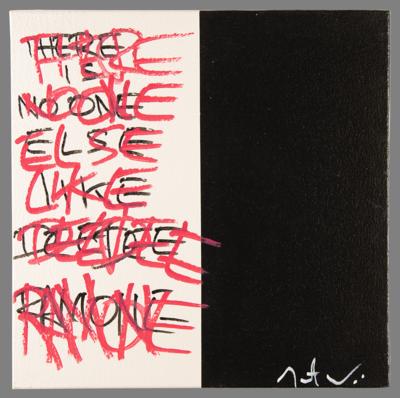 THERE
IS
NO ONE
ELSE
LIKE
DEE DEE
RAMONE